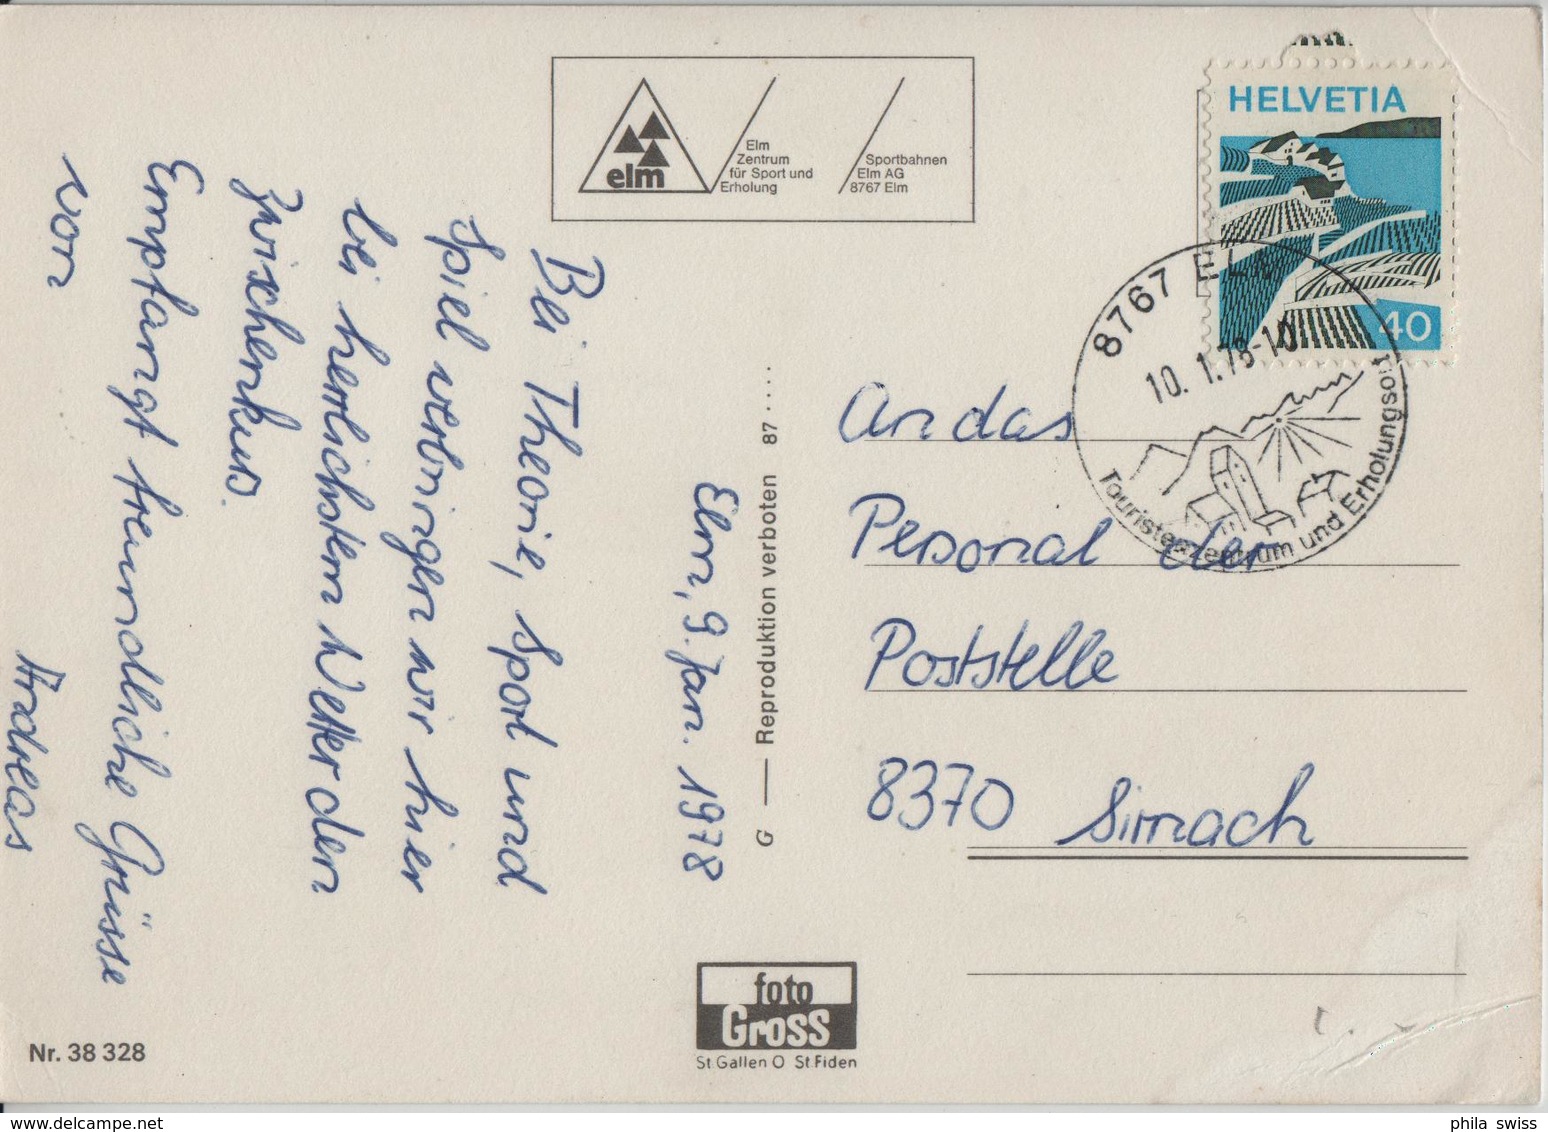 elm
Elm
Zentrum
für Sport und
Erholung
Sportbahnen
Elm AG
8767 Elm
HELVETIA
40
8767 ELM
10.1.78-10
Touristenzentrum und Erholungsort
Elm, 9. Jan. 1978
Bei Theorie, Sport und
Spiel verbringen wir hier
bei herrlichstem Wetter den
Zwischenkurs.
Empfangt freundliche Grüsse
von
Andreas
G — Reproduktion verboten 87....
An das
Personal der
Poststelle
8370 Sirnach
foto
Gross
St.Gallen O St.Fiden
Nr. 38 328
www.delcampe.net
phila_swiss